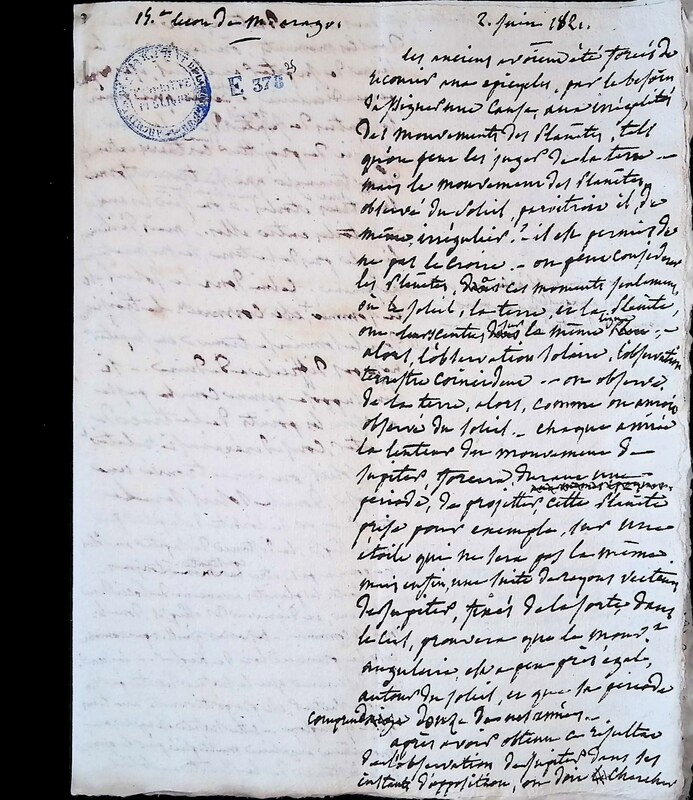 15.e leçon de M. arago.
2. juin 1821.
E 378
25
les anciens avoient été forcés de
recourir aux epicycles, par le besoin
d'assigner une cause, aux irrégularités
des mouvements des Planetes, tels
qu'on peut les juger de la terre —
mais le mouvement des Planetes,
observé du Soleil, paroitroit il, de
même, irrégulier? — il est permis de
ne pas le croire. — on peut considerer
les Planetes, dans ces moments seulement
où le soleil, la terre, et la Planete,
ont leurs centres sur la même ligne —
alors, l'observation solaire, l'observation
terrestre coincident — on observe,
de la terre, alors, comme on auroit
observé du soleil. — chaque année
la lenteur du mouvement de
Jupiter, forcera, durant une
periode, de projetter cette Planete
prise pour exemple, sur une
étoile qui ne sera pas la même
mais enfin, une suite de rayons vecteurs
de Jupiter, fixés de la sorte, dans
le ciel, prouvera que le mouv.t
angulaire, est a peu près égal,
autour du soleil, et que sa periode
comprend douze de nos années. —
après avoir obtenu ce resultat
de l'observation de Jupiter, dans ses
instants d'opposition, on doit chercher